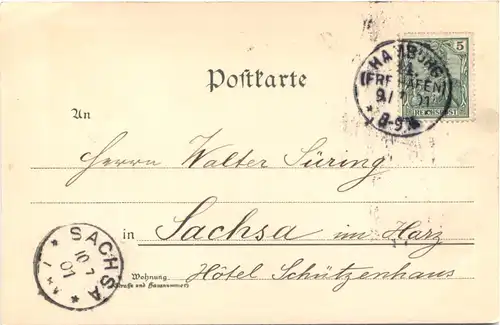 HAMBURG
(FREIHAFEN)
5
REICHSPOST
Postkarte
An
Herrn Walter Süring
in Sachsa im Harz
Wohnung Hôtel Schützenhaus
(Straße und Hausnummer)
* SACHSA *
10 7
01